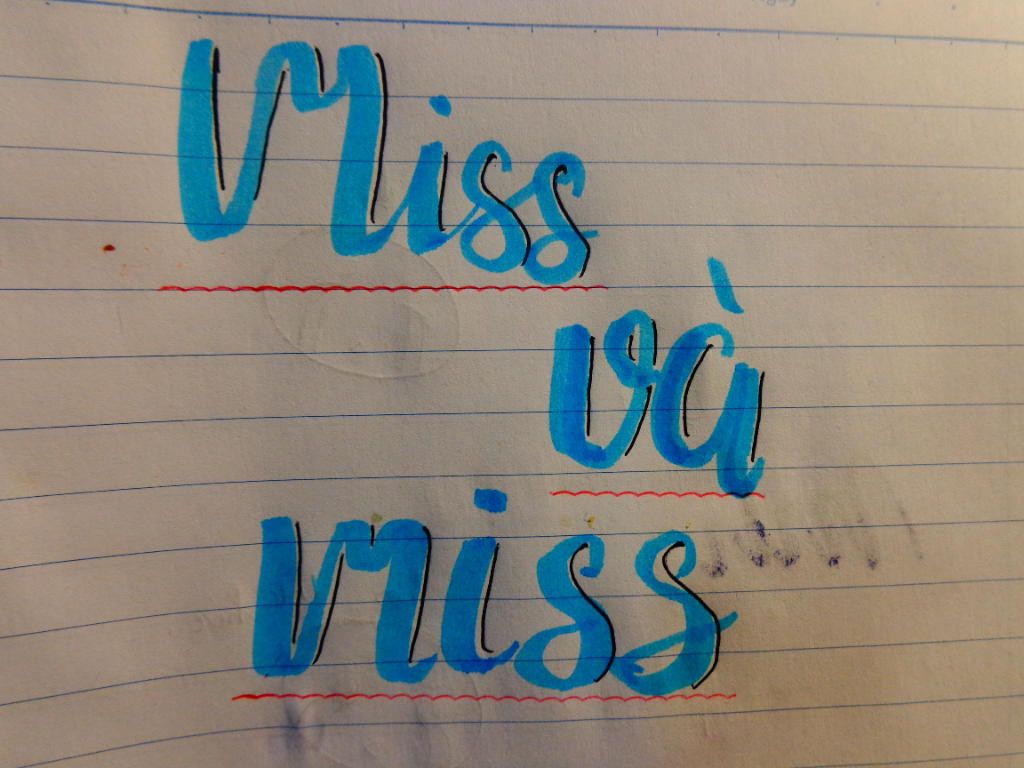 Miss
và
miss